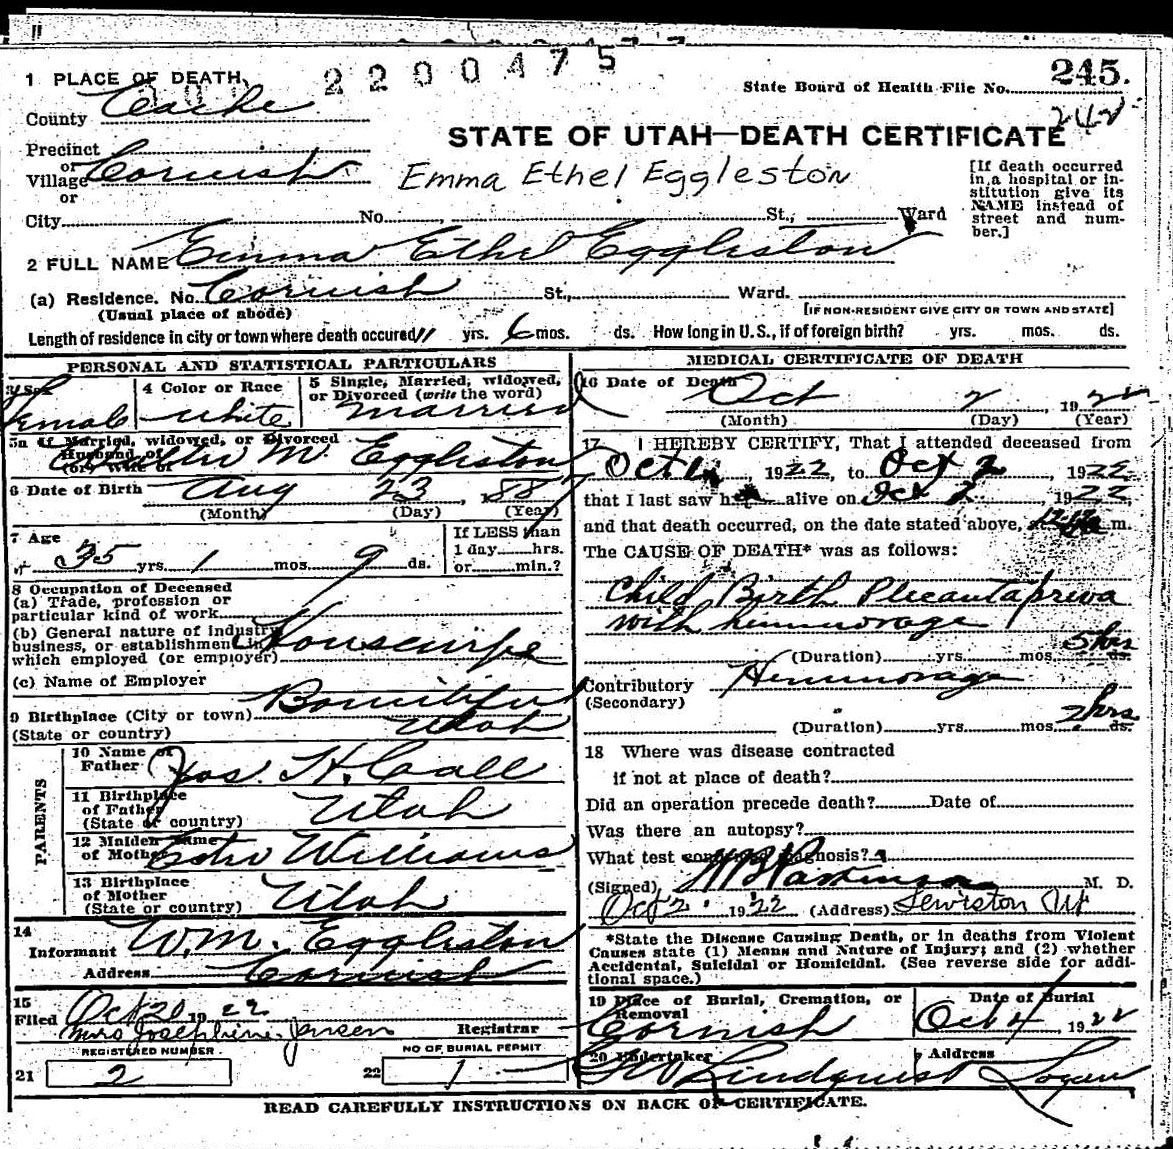 2200475
1 PLACE OF DEATH
State Board of Health File No. 245.
County Cache
242
STATE OF UTAH—DEATH CERTIFICATE
Precinct
or
Village Cornish
or
Emma Ethel Eggleston
[If death occurred in a hospital or institution give its NAME instead of street and number.]
City No. , St., Ward
2 FULL NAME Emma Ethel Eggleston
(a) Residence. No. Cornish St., Ward.
(Usual place of abode)
[IF NON-RESIDENT GIVE CITY OR TOWN AND STATE]
Length of residence in city or town where death occured 11 yrs. 6 mos. ds. How long in U.S., if of foreign birth? yrs. mos. ds.
PERSONAL AND STATISTICAL PARTICULARS
3 Sex Female
4 Color or Race white
5 Single, Married, widowed, or Divorced (write the word) married
5a If Married, widowed, or Divorced
Husband of
(or) wife of M. Eggleston
6 Date of Birth Aug 23, 188
(Month) (Day) (Year)
7 Age
35 yrs. 1 mos. 9 ds.
If LESS than
1 day hrs.
or min.?
8 Occupation of Deceased
(a) Trade, profession or
particular kind of work
(b) General nature of industry
business, or establishment in
which employed (or employer) Housewife
(c) Name of Employer
9 Birthplace (City or town) Bountiful
(State or country) Utah
PARENTS
10 Name of
Father Jos. H. Call
11 Birthplace
of Father
(State or country) Utah
12 Maiden Name
of Mother Williams
13 Birthplace
of Mother
(State or country) Utah
14
Informant W.M. Eggleston
Address Cornish
15
Filed Oct 20 19 22
Mrs Josephine Jensen Registrar
REGISTERED NUMBER
21 2
NO OF BURIAL PERMIT
22 1
MEDICAL CERTIFICATE OF DEATH
16 Date of Death Oct 2, 1922
(Month) (Day) (Year)
17 I HEREBY CERTIFY, That I attended deceased from
Oct 1922, to Oct 2 1922
that I last saw h alive on Oct 2, 1922,
and that death occurred, on the date stated above, at m.
The CAUSE OF DEATH* was as follows:
Child Birth Plecanta priva
with hemmorage
(Duration) yrs. mos. 5 hrs ds.
Contributory Hemmorage
(Secondary)
(Duration) yrs. mos. 2 hrs ds.
18 Where was disease contracted
if not at place of death?
Did an operation precede death? Date of
Was there an autopsy?
What test confirmed diagnosis?
(Signed) Parkinson M. D.
Oct 2 1922 (Address) Lewiston Ut
*State the Disease Causing Death, or in deaths from Violent
Causes state (1) Means and Nature of Injury; and (2) whether
Accidental, Suicidal or Homicidal. (See reverse side for addi-
tional space.)
19 Place of Burial, Cremation, or
Removal
Cornish
Date of Burial
Oct 4, 1922
20 Undertaker
Lindquist
Address
Logan
READ CAREFULLY INSTRUCTIONS ON BACK OF CERTIFICATE.